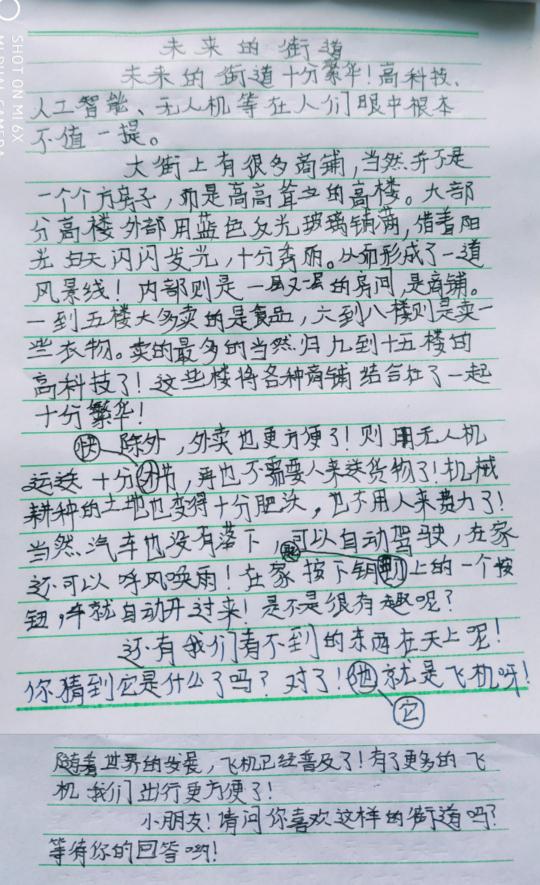 SHOT ON MI 6X
MI DUAL CAMERA
未来的街道
未来的街道十分繁华！高科技、
人工智能、无人机等在人们眼中根本
不值一提。
大街上有很多商铺，当然并不是
一个个方房子，而是高高耸立的高楼。大部
分高楼外部用蓝色反光玻璃铺满，借着阳
光白天闪闪发光，十分秀丽。从而形成了一道
风景线！内部则是一层又一层的房间，是商铺。
一到五楼大多卖的是食品，六到八楼则是卖一
些衣物。卖的最多的当然归九到十五楼的
高科技了！这些楼将各种商铺结合在了一起
十分繁华！
快 除外，外卖也更方便了！则用无人机
运送十分节，再也不需要人来送货物了！机械
耕种的土地也变得十分肥沃，也不用人来费力了！
当然汽车也没有落下，可以自动驾驶，在家
还可以呼风唤雨！在家按下钥上的一个按
钮，车就自动开过来！是不是很有趣呢？
还有我们看不到的东西在天上呢！
你猜到它是什么了吗？对了！他就是飞机呀！
它
随着世界的发展，飞机已经普及了！有了更多的飞
机我们出行更方便了！
小朋友！请问你喜欢这样的街道吗？
等待你的回答哟！